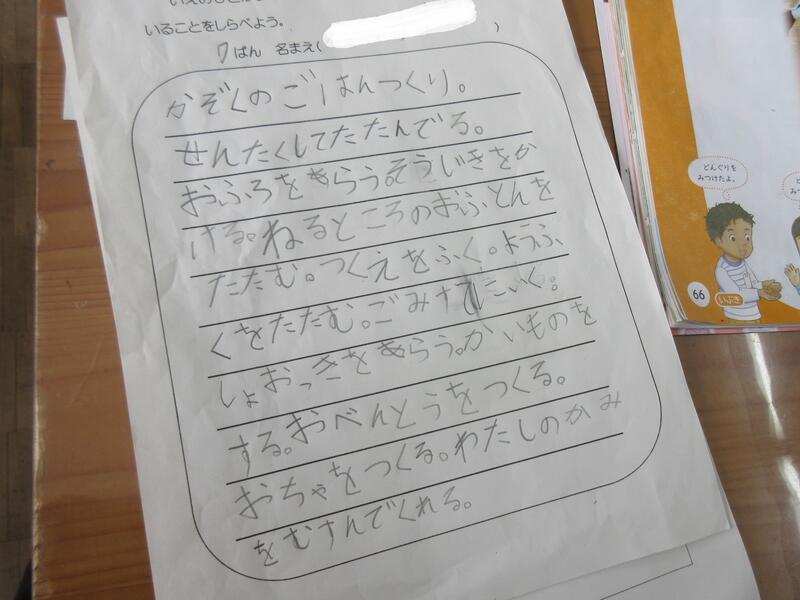 いることをしらべよう。
7 ぱん 名まえ( )
かぞくのごはんつくり。
せんたくしてたたんでる。
おふろをあらう。そういきをか
ける。ねるところのおふとんを
たたむ。つくえをふく。ようふ
くをたたむ。ごみすてにいく。
しょおっきをあらう。かいものを
する。おべんとうをつくる。
おちゃをつくる。わたしのかみ
をむすんでくれる。
どんぐりを
みつけたよ。
66
いぶき